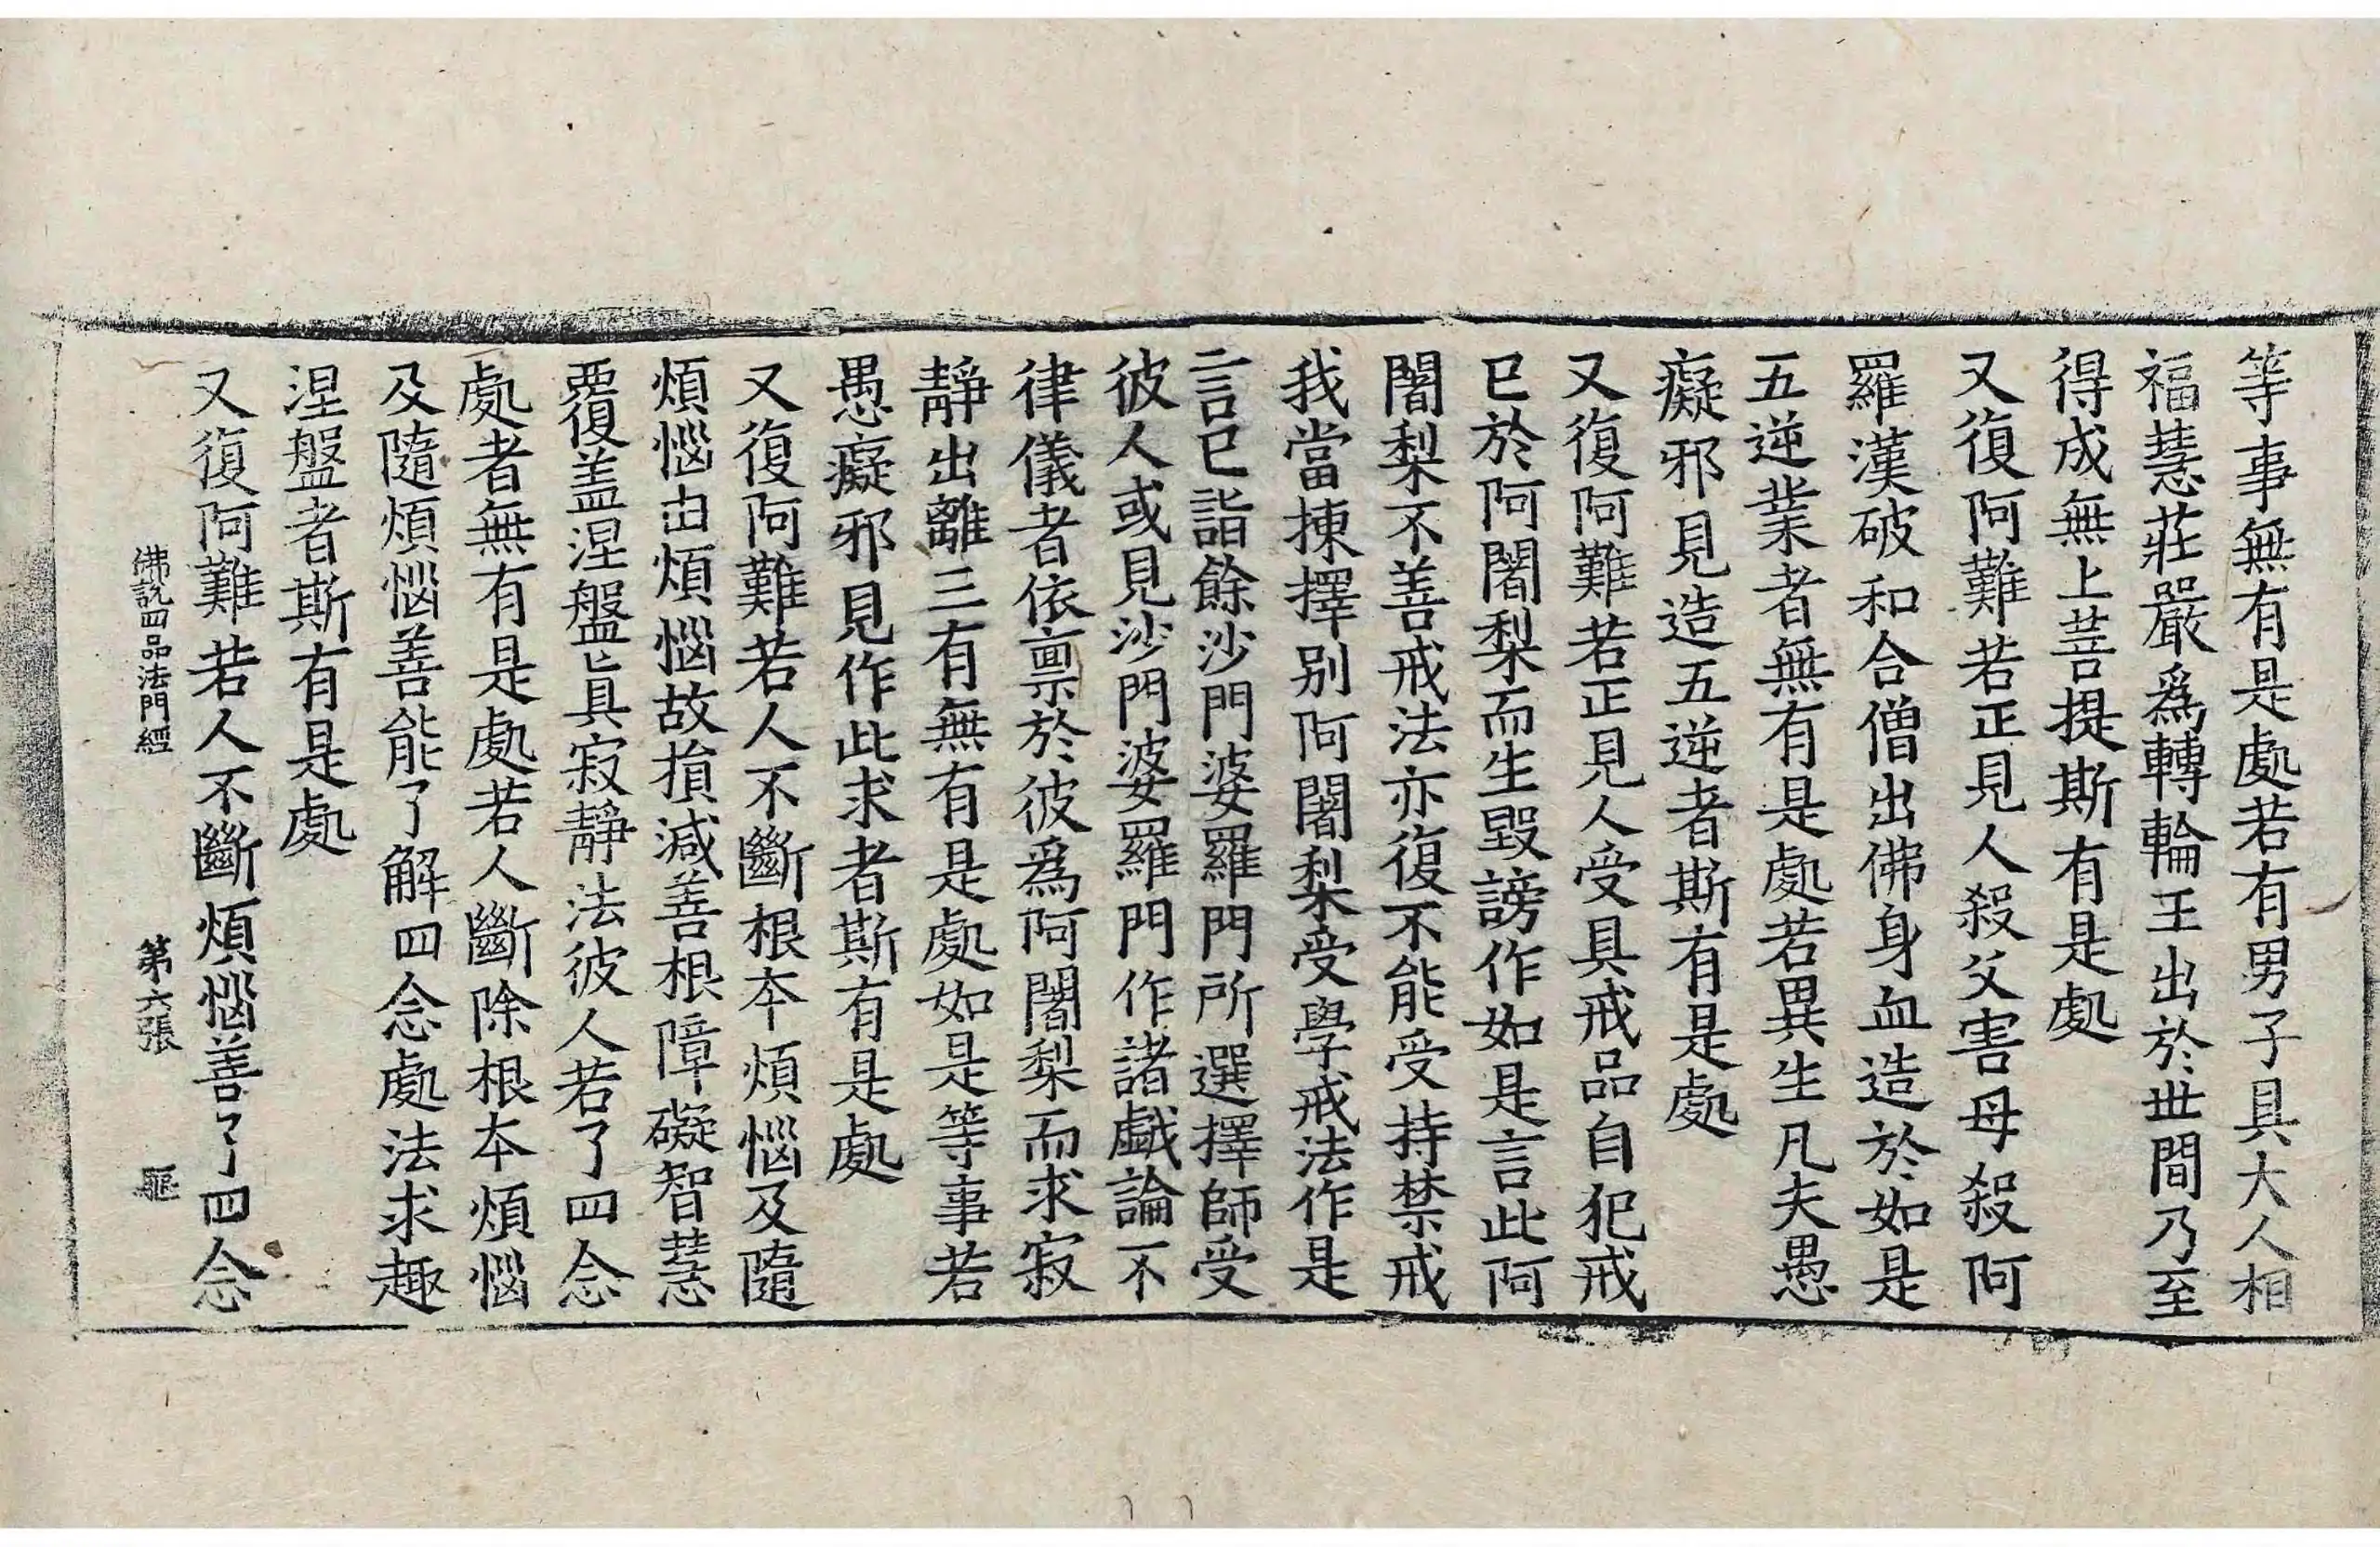 等事無有是處若有男子具大人相
福慧莊嚴爲轉輪王出於世間乃至
得成無上菩提斯有是處
又復阿難若正見人殺父害母殺阿
羅漢破和合僧出佛身血造於如是
五逆業者無有是處若異生凡夫愚
癡邪見造五逆者斯有是處
又復阿難若正見人受具戒品自犯戒
已於阿闍梨而生毀謗作如是言此阿
闍梨不善戒法亦復不能受持禁戒
我當揀擇别阿闍梨受學戒法作是
言已詣餘沙門婆羅門所選擇師受
彼人或見沙門婆羅門作諸戱論不
律儀者依禀於彼爲阿闍梨而求寂
靜出離三有無有是處如是等事若
愚癡邪見作此求者斯有是處
又復阿難若人不斷根本煩惱及隨
煩惱由煩惱故損減善根障礙智慧
覆盖涅盤眞寂靜法彼人若了四念
處者無有是處若人斷除根本煩惱
及隨煩惱善能了解四念處法求趣
涅盤者斯有是處
又復阿難若人不斷煩惱善了了四念
佛説四品法門經 第六張